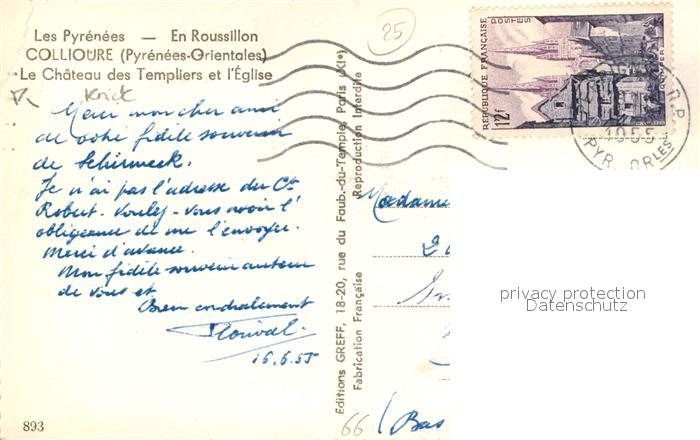 Les Pyrénées — En Roussillon
COLLIOURE (Pyrénées-Orientales)
Le Château des Templiers et l'Église
25
Merci mon cher ami
de votre fidèle souvenir
de Schirmeck.
Je n'ai pas l'adresse du Ct
Robert. Voulez-vous avoir l'
obligeance de me l'envoyer.
Merci d'avance.
Mon fidèle souvenir autour
de vous et
Bien cordialement
16.6.55
893
Editions GREFF, 18-20, rue du Faub.-du-Temple, Paris (XIe)
Fabrication Française Reproduction Interdite
RÉPUBLIQUE FRANÇAISE
POSTES
12f
QUIMPER
1955
PYR. ORLES
Madame
66
(Bas
privacy protection
Datenschutz